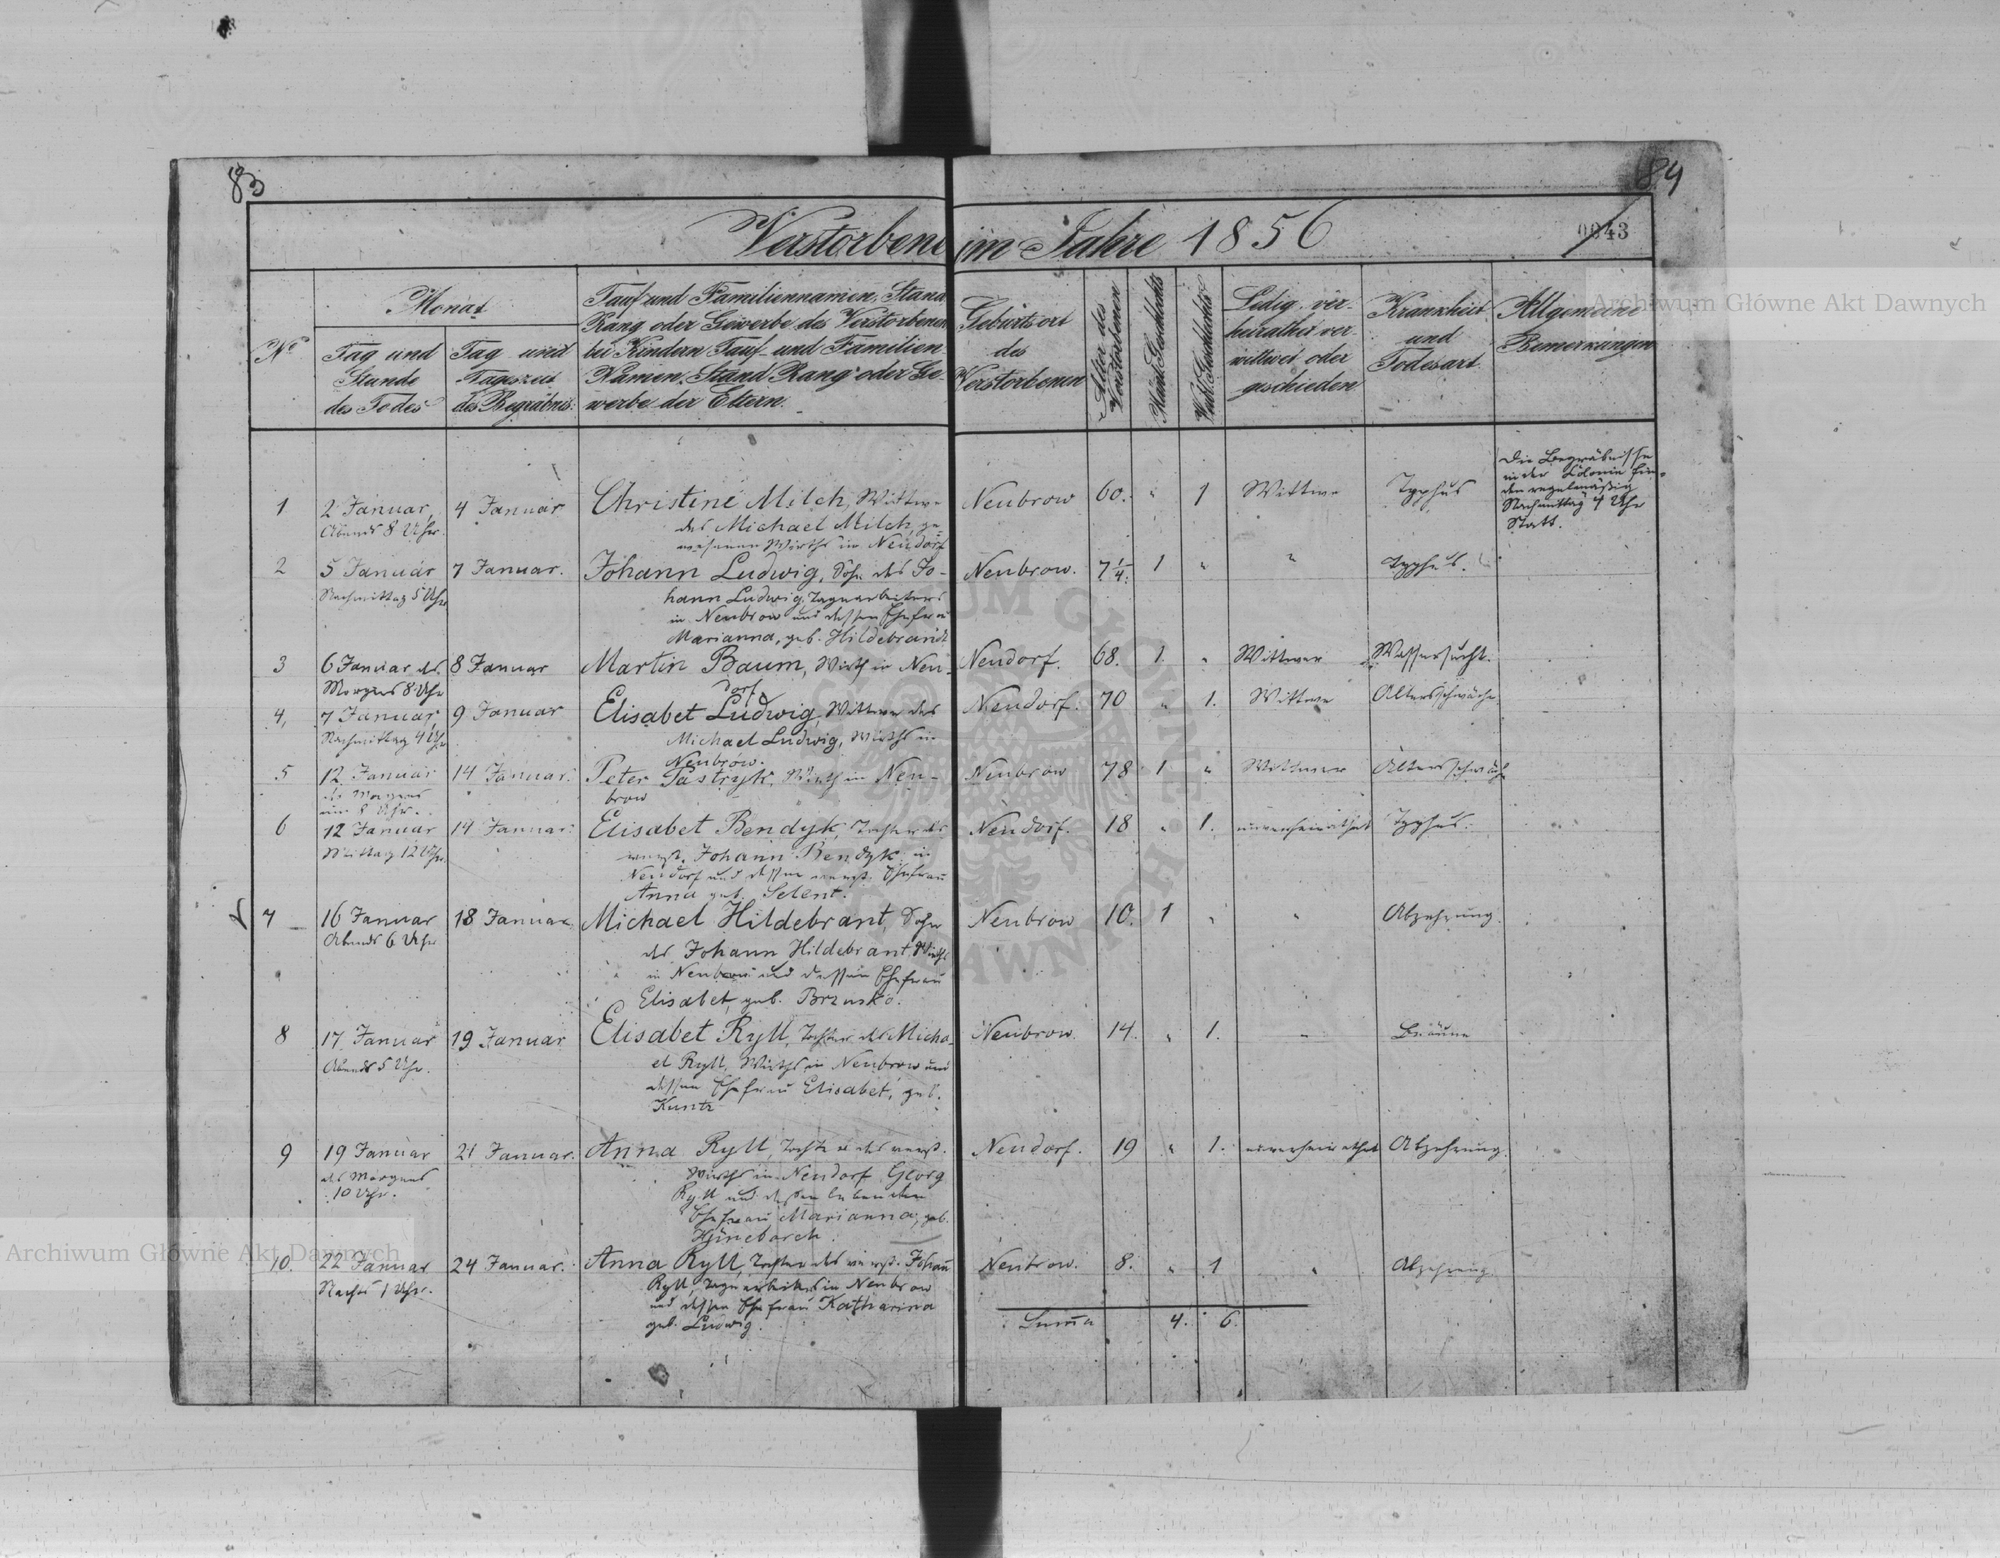 83
84
Verstorbene im Jahre 1856
0043
Archiwum Główne Akt Dawnych
No
Monat
Tag und
Stunde
des Todes
Tag und
Tageszeit
des Begräbnis:
Tauf und Familiennamen, Stand
Rang oder Gewerbe des Verstorbenen
bei Kindern Tauf- und Familien-
Namen, Stand Rang oder Ge-
werbe der Eltern.
Geburtsort
des
Verstorbenen
Alter des
Verstorbenen
Mänl. Geschlechts
Weibl. Geschlechts
Ledig, ver-
heirathet ver
wittwet oder
geschieden
Krankheit
und
Todesart.
Allgemeine
Bemerkungen
1
2 Januar,
Abends 8 Uhr.
4 Januar
Christine Milch, Wittwe
des Michael Milch, ge
wesenen Wirths in Neudorf
Neubrow
60.
"
1
Wittwe
Typhus
Die Begräbnisse
in der Colonie fin-
den regelmäßig
Nachmittag 4 Uhr
Statt.
2
5 Januar
Nachmittag 5 Uhr
7 Januar.
Johann Ludwig, Sohn des Jo-
hann Ludwig, Tagearbeiters
in Neubrow und dessen Ehefrau
Marianna, geb. Hildebrandt
Neubrow.
7 1/4.
1
"
"
Typhus.
3
6 Januar des
Morgens 8 Uhr
8 Januar
Martin Baum, Wirth in Neu-
dorf
Neudorf.
68.
1.
"
Wittwer
Wassersucht.
4,
7 Januar,
Nachmittag 4 Uhr
9 Januar
Elisabet Ludwig, Wittwe des
Michael Ludwig, Wirths in
Neubrow.
Neudorf.
70
"
1.
Wittwe
Altersschwäche
5
12 Januar
des Morgens
um 8 Uhr.
14 Januar.
Peter Pastryk, Wirth in Neu-
brow
Neubrow
78
1
"
Wittwer
Altersschwäche
6
12 Januar
Mittag 12 Uhr.
14 Januar.
Elisabet Bendyk, Tochter des
verst. Johann Bendyk in
Neudorf und dessen verst. Ehefrau
Anna geb. Selent.
Neudorf.
18
"
1.
unverheirathet
Typhus.
7
16 Januar
Abends 6 Uhr
18 Januar
Michael Hildebrant, Sohn
des Johann Hildebrant, Wirths
in Neubrow und dessen Ehefrau
Elisabet, geb. Brzusko.
Neubrow
10.
1
"
"
Abzehrung.
8
17 Januar
Abends 5 Uhr.
19 Januar
Elisabet Ryll, Tochter des Micha-
el Ryll, Wirths in Neubrow und
dessen Ehefrau Elisabet, geb.
Kuntz
Neubrow.
14.
"
1.
"
Bräune
9
19 Januar
des Morgens
10 Uhr.
21 Januar.
Anna Ryll, Tochter des verst.
Wirths in Neudorf Georg
Ryll und dessen lebenden
Ehefrau Marianna, geb.
Neudorf.
19
"
1.
unverheirathet
Abzehrung.
10.
22 Januar
Nachts 1 Uhr.
24 Januar.
Anna Ryll, Tochter des verst. Johann
Ryll, Tagearbeiters in Neubrow
und dessen Ehefrau Katharina
geb. Ludwig.
Neubrow.
8.
"
1
"
Abzehrung
Summa
4.
6.
Archiwum Główne Akt Dawnych